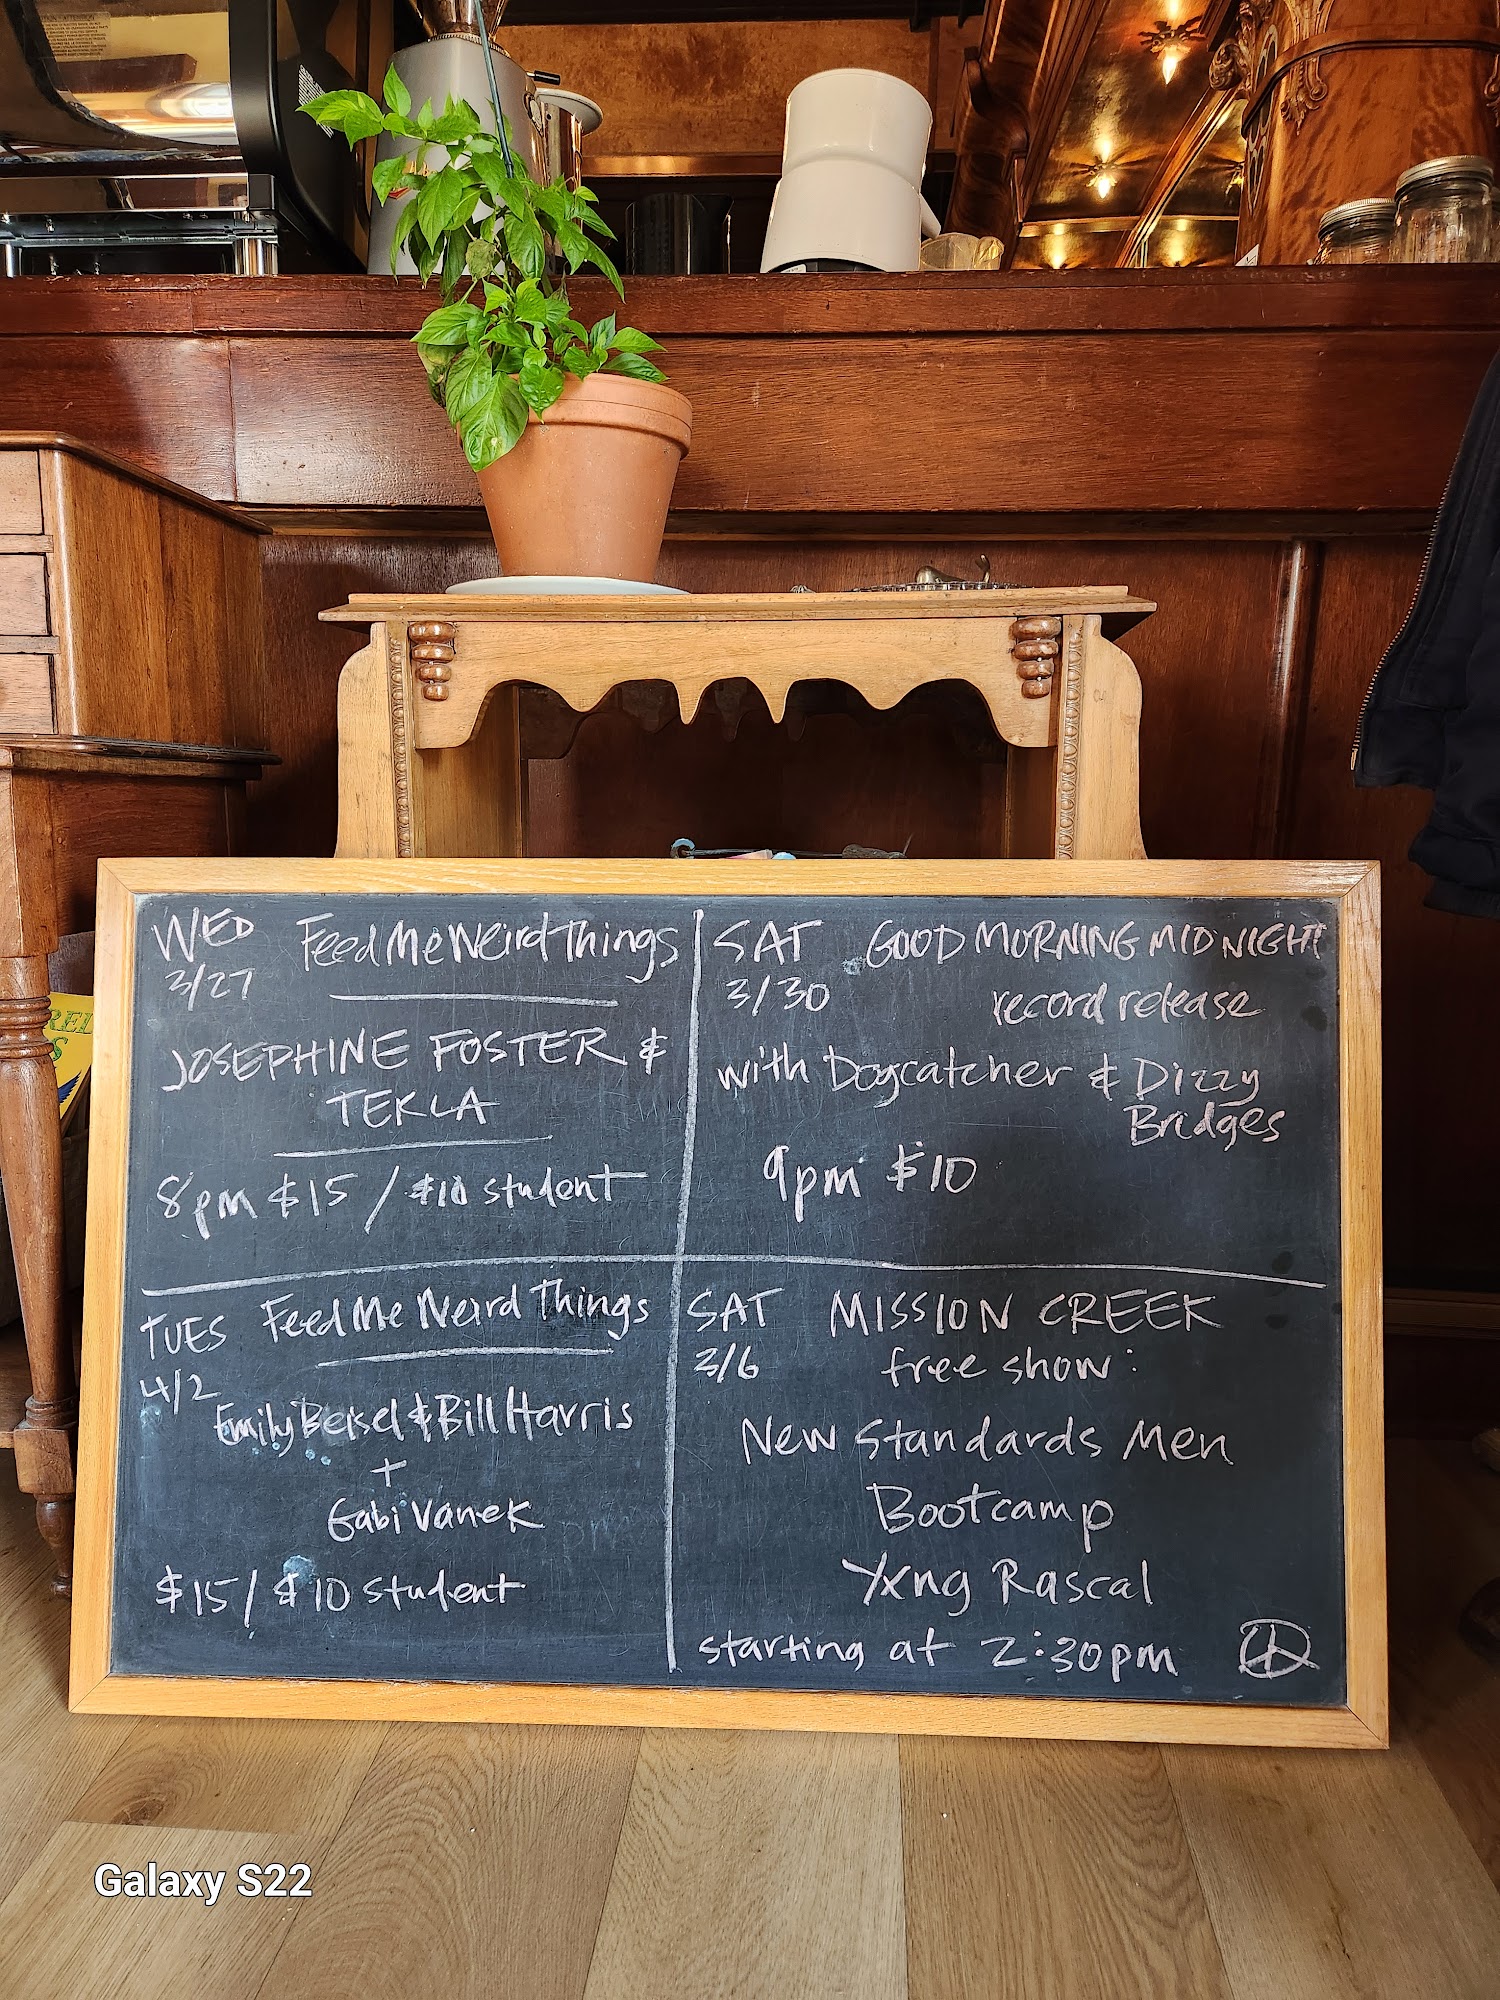 WED
3/27
Feed Me Weird Things
JOSEPHINE FOSTER &
TEKLA
8pm $15 / $10 student
SAT
3/30
GOOD MORNING MIDNIGHT
record release
with Dogcatcher & Dizzy
Bridges
9pm $10
TUES
4/2
Feed Me Weird Things
Emily Beisel & Bill Harris
+
Gabi Vanek
$15 / $10 student
SAT
3/6
MISSION CREEK
free show:
New Standards Men
Bootcamp
Yxng Rascal
starting at 2:30pm
Galaxy S22